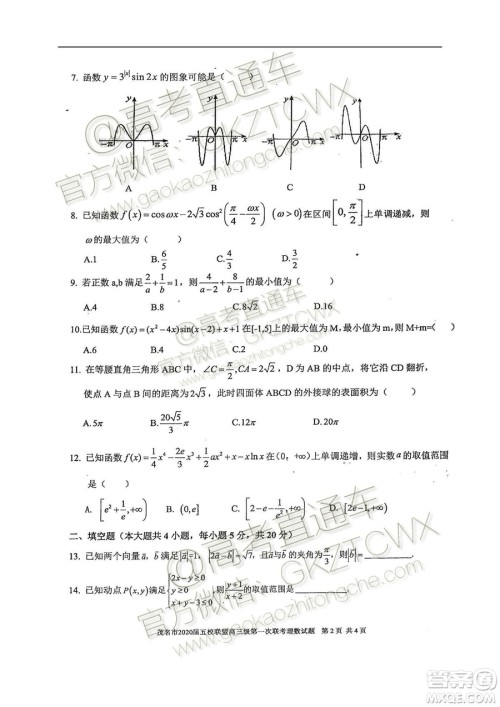 7. 函数 y=3^{|x|}sin 2x 的图象可能是（　）
A　B　C　D
8. 已知函数 f(x)=cosωx-2√3cos²(π/4-ωx/2)（ω>0）在区间[0,π/2]上单调递减，则
ω的最大值为（　）
A.1　B.6/5　C.4/3　D.3/2
9. 若正数 a,b 满足 2/a+1/b=1，则 4/(a-2)+8/(b-1) 的最小值为（　）
A.4　B.8　C.8√2　D.16
10.已知函数 f(x)=(x²-4x)sin(x-2)+x+1在[-1,5]上的最大值为 M,最小值为 m,则 M+m=（　）
A.4　B.2　C.6　D.0
11. 在等腰直角三角形 ABC 中，∠C=π/2,CA=2√2，D 为 AB 的中点，将它沿 CD 翻折，
使点 A 与点 B 间的距离为2√3，此时四面体 ABCD 的外接球的表面积为（　）
A.5π　B.20√5/3 π　C.12π　D.20π
12. 已知函数 f(x)=1/4x⁴-2e/3x³+1/2ax²+x-xlnx 在(0，+∞)上单调递增，则实数 a 的取值范围
是（　）
A. [e²+1/e,+∞)　B. (0,e]　C. [2-e-1/e,+∞)　D. [2e-1,+∞)
二、填空题（本大题共 4 小题，每小题 5 分，共 20 分）
13. 已知两个向量 a,b 满足|a|=1，|2a-b|=√7，且a与b的夹角为π/3，则|b|=
14. 已知动点 P(x,y) 满足{2x-y≥0 x-2y≤0 x+y-3≤0，则 (y+1)/(x+2) 的取值范围是
茂名市2020届五校联盟高三级第一次联考理数试题　第 2 页 共 4 页
@高考直通车
官方微信：GKZTCWX
www.gaokaozhitongche.com